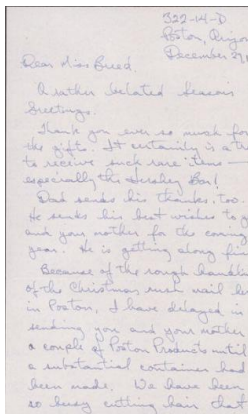 322-14-D
Poston, Arizon
December 29,
Dear Miss Breed,
A rather belated Season
Greetings.
Thank you ever so much for
the gifts. It certainly is a tr
to receive such rare items —
especially the Hershey Bar!
Dad sends his thanks, too.
He sends his best wishes to y
and your mother for the coming
year. He is getting along fin
Because of the rough handlin
of the Christmas rush mail he
in Poston, I have delayed in
sending you and your mother
a couple of Poston Products until
a substantial container had
been made. We have been
so busy cutting hair that